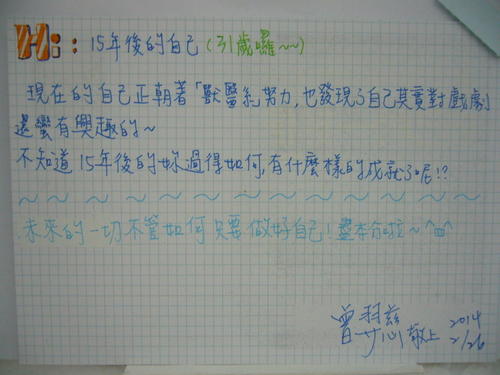 Hi: 15年後的自己(31歲囉~~)
現在的自己正朝著「獸醫系努力,也發現了自己其實對戲劇
還蠻有興趣的~
不知道15年後的妳過得如何,有什麼樣的成就了呢!?
~~~~~~~~~~~~~~~~
未來的一切不管如何只要做好自己!盡本分啦~^皿^
曾 慈 敬上 2014
2/26